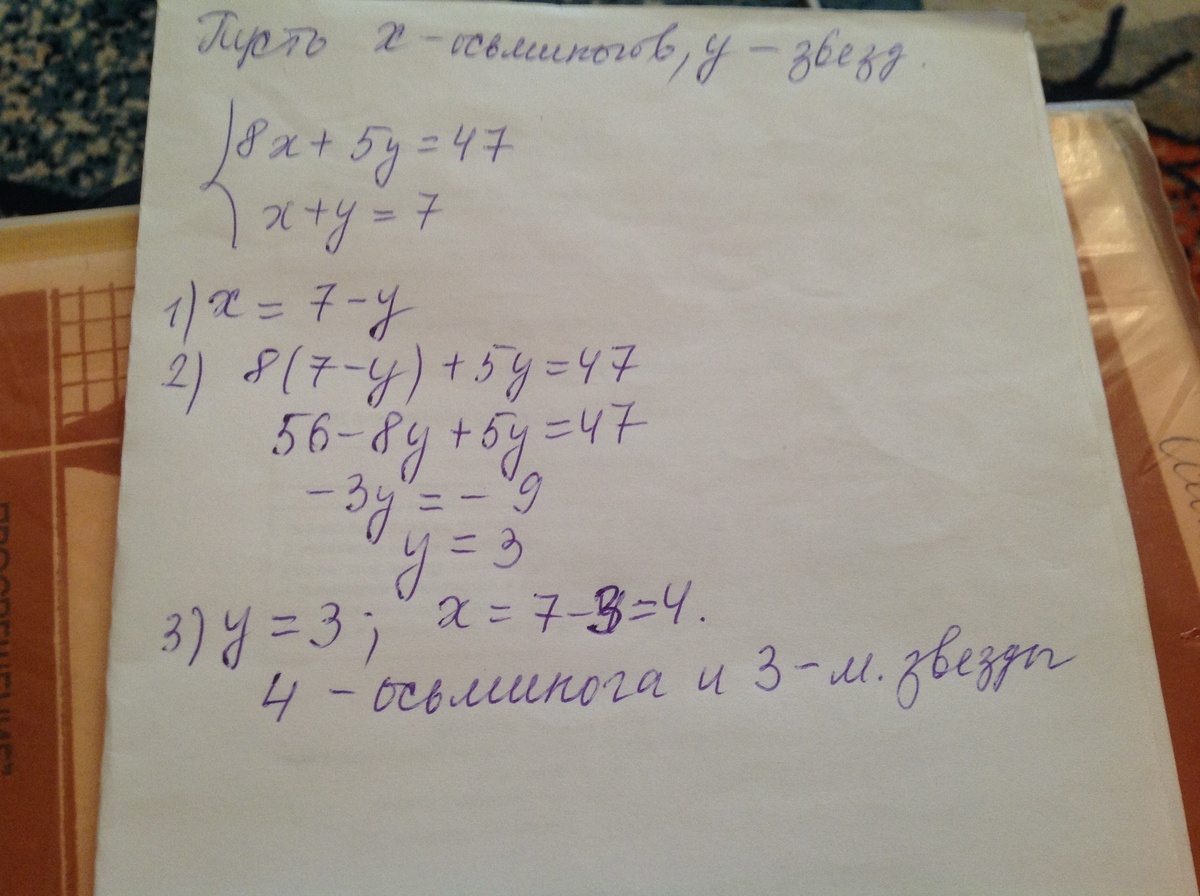 Пусть x - осьминогов, y - звезд.
8x + 5y = 47
x + y = 7
1) x = 7 - y
2) 8(7 - y) + 5y = 47
56 - 8y + 5y = 47
-3y = - 9
y = 3
3) y = 3; x = 7 - 3 = 4.
4 - осьминога и 3 - м. звезды
ПРОСВЕЩЕНИЕ"